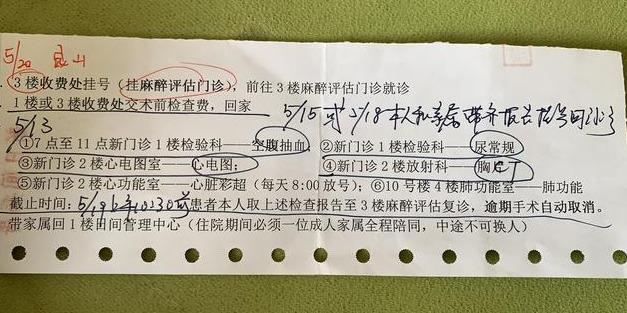 5/20
3楼收费处挂号（挂麻醉评估门诊），前往3楼麻醉评估门诊就诊
1楼或3楼收费处交术前检查费，回家
5/15或5/18本人和
5/13
①7点至11点新门诊1楼检验科——空腹抽血 ②新门诊1楼检验科——尿常规
③新门诊2楼心电图室——心电图； ④新门诊2楼放射科——胸
⑤新门诊2楼心功能室——心脏彩超（每天8:00放号）；⑥10号楼4楼肺功能室——肺功能
截止时间：5/19上午10:30前患者本人取上述检查报告至3楼麻醉评估复诊，逾期手术自动取消。
带家属回1楼日间管理中心（住院期间必须一位成人家属全程陪同，中途不可换人）